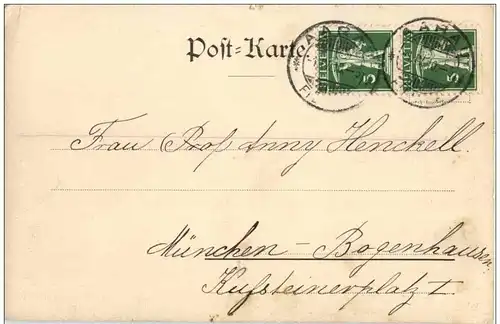 Post-Karte
AARAU
HELVETIA
5
HELVETIA
5
Frau Prof Anny Henckell.
München-Bogenhausen
Kufsteinerplatz I